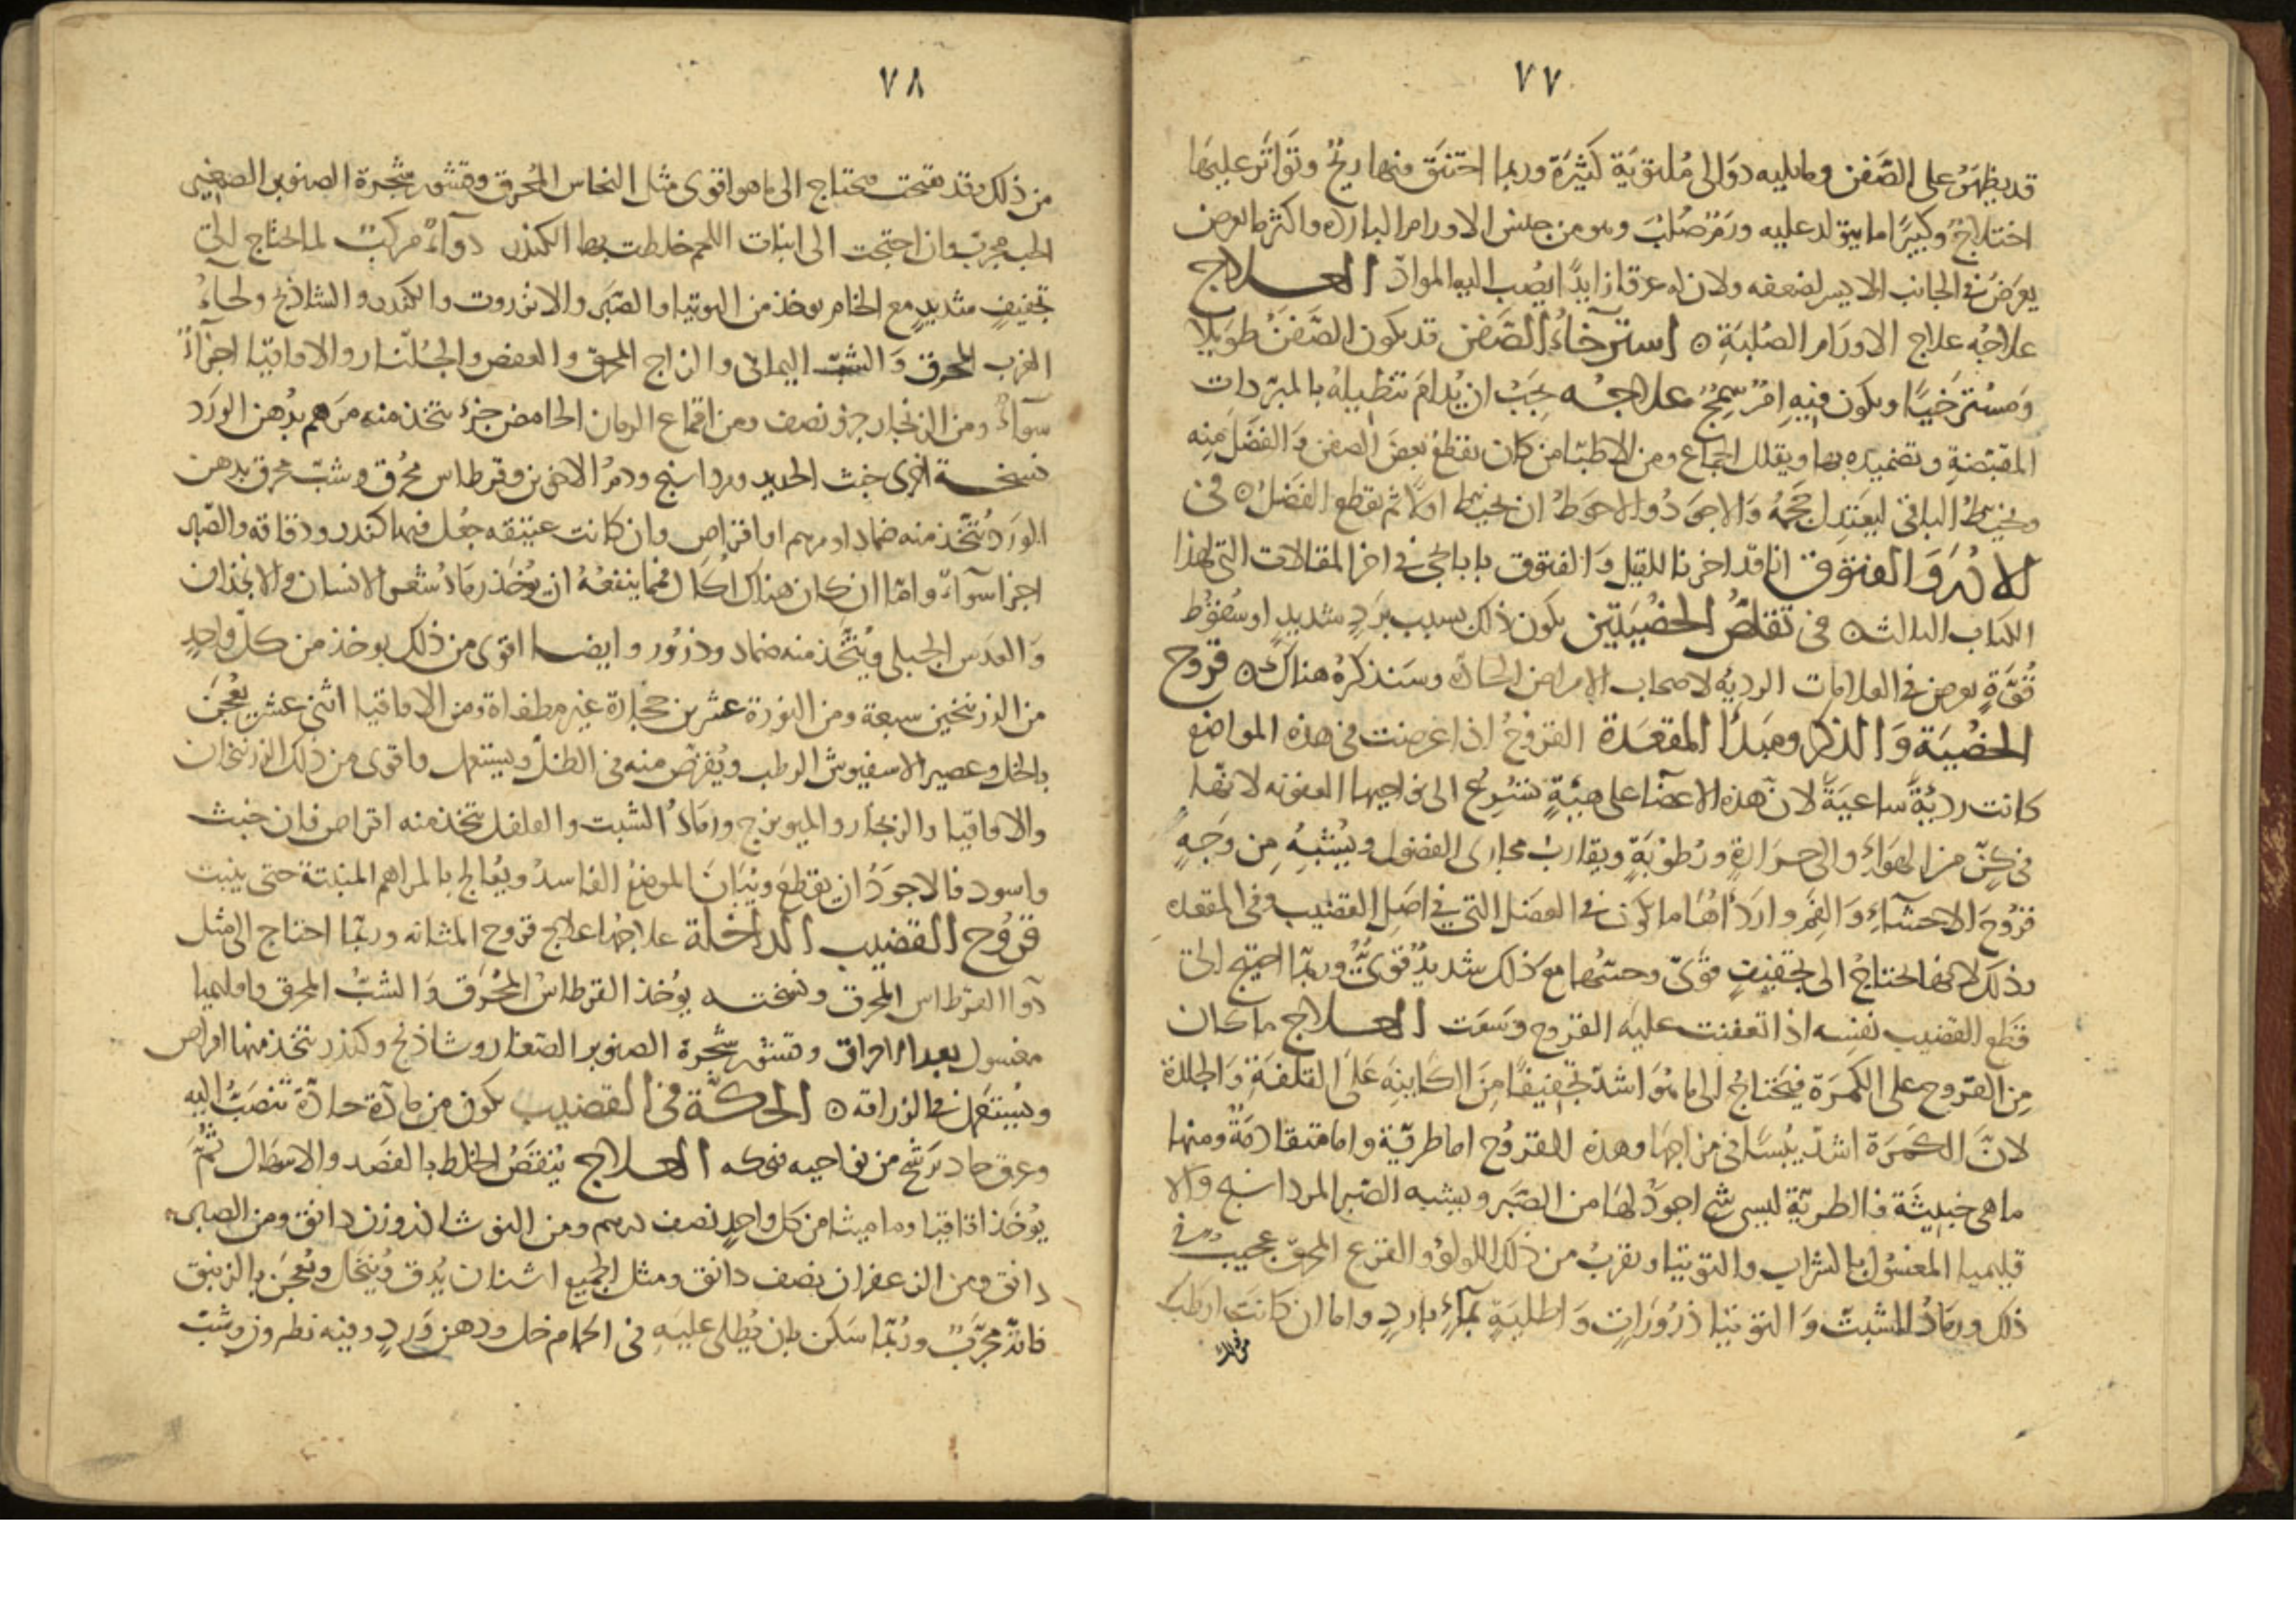 ٧٧
قد يظهر على الصَّفن وما يليه دوالى مُلتويَة كثيَرة وربما احتنَق فيها ريحٌ وتَواتَر عليها
اختلاجٌ وكبيرًا ما يتولد عليه ورَمٌ صُلبٌ وهو من جنس الاورام الباردة واكثر ما يعرض
يعرَضُ فى الجانب الايسر لضعفه ولان له عرقا زايدًا يصُب اليه الموادّ العلاج
علاجُه علاج الاورَام الصُلبَةِ ه استرخاءُ الصَّفن قد يكون الصَّفنُ طويلًا
وَمسُترَخيًا ويكون فيهِ امرٌ سَمِجٌ علاجُه يجَبُ ان يُدامَ تنطيلهُ بالمبرّدات
المقبّضةِ وتضميده بها ويقلل الجماع ومن الاطبّا من كان يقطعُ بعضَ الصفن وَالفضَل مِنه
ويخيطُ الباقى ليعتَدِل حجمُهُ وَالاجوَدُ والاحوَطُ ان يخيط اولًا ثم يقطع الفضَلُ ه فى
الادُرَةِ وَالفتوق انا قد اخرنا للقيل وَالفتوق بابا يجى فى اخر المقالات التى لهذا
الكتاب الثالث ه فى تَقلصُّ الخصُيَتَين يكون ذلك بسبب بَردٍ شديدٍ او سُقوُط
قُوَّةٍ يعرض فى العلامات الرديَّه لاصحاب الامراض الحادّه وسَنذكرهُ هناك ه قروح
الخصُيَة وَالذكر ومَبدَأ المقعَدَة القروُحُ اذا عرضت فى هذه المواضع
كانت رديَّةً ساعيَةً لانّ هذه الاعضآ على هيَئةٍ تسُرِعُ الى نواجيها العفونه لانّها
فى كِنٍّ من الهَوآءِ والى حرَارةٍ ورُطوُبَةٍ ويقاربُ مجارى الفضوُل ويُشبِهُ مِن وَجَهٍ
قرُوُحَ الاحشآءِ وَالفمِ وارَدَأُهَا ما يكون فى العضَل التى فى اصَل القضيب وفى المقعده
وذلك لانها تحتاجُ الى تجفيفٍ قوىّ وحسّهُا مع ذلك شديدٌ قوىٌّ وربّما احتيج الى
قطع القضيب نفسِه اذا تعفنت عليه القروح وسَعَت العلاج ما كان
مِن القرَوح على الكمرَة فيحَتاجُ الى ما هُوَ اشدّ تجفيفًا مِنَ الكاينِةَ عَلَى القلفَةِ وَالجلدة
لانَّ الكمَرَة اشدّ يبُسًا فى مزاجَهَا وهذه القروُح اما طريّة واما متقادمَةٌ ومنها
ما هى خبيثَة فالطريّة ليس شى اجودُ لهَا من الصّبَر ويشبه الصّبر المرداسنج والا
قليميا المغسُول بالشراب والتوتيا ويقربُ من ذلك اللولؤ والقرع المحرق عجيبٌ فى
ذلك ورمَادُ الشبثّ وَالتوتيا ذرُورَاتٍ وَاطليَةٍ بمآءٍ باردٍ واما ان كانَت ارَطب
من ذلك
٧٨
من ذلك وقد تقيحت فتحتاج الى ما هو اقوى مثل النحاس المُحرق وقشور شجرة الصنوبر الصغير
الحب مجربٌ وان احتجت الى انبات اللحم خلطت بها الكندر دوآءٌ مركبٌ لما احتاج الى
تجفيفٍ شديدٍ مع الختم يوخذ من التوتيا والصّبَر والانزروت والكندر والشاذنج ولحاءُ
الغرب المحرق وَالشبّ اليمانى والزاج المحرق والعفص والجُلّنار والاقاقيا اجزآءٌ
سوآءٌ ومن الزنجار جزؤ ونصف ومن اقماع الرمان الحامض جزء يتخذ منه مَرهم بدُهن الورَد
نسخة اخرى خبث الحديد ومرداسنج ودمُ الاخوين وقرطاس مُحرَق وشبّ محرق بدهن
الورَد يُتّخذ منه ضماد او مرهم او اقراص وان كانت عتيقه جعُل فيها كندر ودقاقه والصّبر
اجزا سوآءً وامّا ان كان هناك اُكالٌ فمما ينفعُهُ ان يُؤخذ رمَادُ شَعر الانسان والانجذان
وَالعدَس الجبلى ويُتّخَذ منه ضماد وذرُور وايضا اقوى من ذلك يوخذ من كلّ واحدٍ
من الزرنيخين سبعة ومن النورَة عشرين حجارَة غير مطفاة ومن الاقاقيا اثنى عشر يعُجَن
بالخل وعصير الاسفيوش الرطب ويُقرّص منه فى الظلّ ويستعمل واقوى من ذلك الزرنيخان
والاقاقيا والزنجار والميويزج ورمَادُ الشبت والفلفل يتخذ منه اقراص فان خبث
واسود فالاجوَدُ ان يقطع ويُبَانَ الموضعُ الفاسدُ ويعُالج بالمراهم المنبتة حتى ينبت
قروُح القضيب الداخلة علاجهُا علاج قروح المثانه وربّما احتاج الى مثل
دوآ القرطاس المحرق ونسخته يوُخذ القرطاسُ المُحرَق وَالشبُّ المحرق واقليميا
مغسول بعد الاحراق وقشور شجرة الصنوبر الصّغار وشاذنج وكندر يتّخذ منها اقراص
ويسُتَعمل فى الزراقه ه الحكّة فى القضيب يكون من مادّة حادّة تنَصَبُّ اليه
وعرق حاد يَرشح من نواحيه فيحكه العلاج ينُقَصُ الخلط بالفصَد والاسهال ثمُّ
يُوُخَذ اقاقيا وماميثا من كل واحدٍ نصف درهم ومن النوشادر وزن دانق ومن الصبر
دانق ومن الزعفران نصف دانق ومثل الجميع اشنان يُدق ويُنخَل ويُعجَن بالزنبق
فانّه مجرَّبٌ ورُبّما سَكن بان يُطلى عليَه فى الحمام خل ودهن وَردٍ وفيه نطرون وشبّ